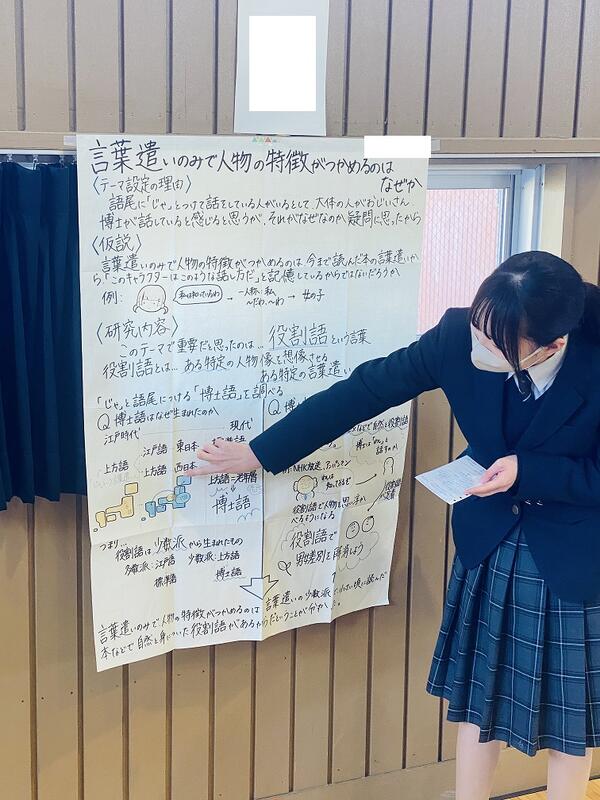 言葉遣いのみで人物の特徴がつかめるのは
なぜか
〈テーマ設定の理由〉
語尾に「じゃ」とつけて話をしている人がいるとして、大体の人がおじいさん、
博士が話していると感じると思うが、それがなぜなのか疑問に思ったから
〈仮説〉
言葉遣いのみで人物の特徴がつかめるのは、今まで読んだ本の言葉遣いか
ら、「このキャラクターはこのような話し方だ」と記憶しているからではないだろうか
例:
私は知っているわ
→
一人称:私
〜だわ、〜わ
→ 女の子
〈研究内容〉
このテーマで重要だと思ったのは… 役割語という言葉
役割語とは… ある特定の人物像を想像させる
ある特定の言葉遣い
「じゃ」と語尾につける「博士語」を調べる
Q 博士語はなぜ生まれたのか
江戸時代
現代
江戸語 東日本
上方語 上方語 西日本
上方語=老年層
博士語
Q 博
などで自然と役割語
NHK放送
役割語で人物を思い浮か
べるようになる
役割語で
つまり…
役割語は少数派から生まれたもの
多数派:江戸語 少数派:上方語
標準語 博士語
言葉遣いの少数派
言葉遣いのみで人物の特徴がつかめるのは
本などで自然と身についた役割語があるからだということが分かった。